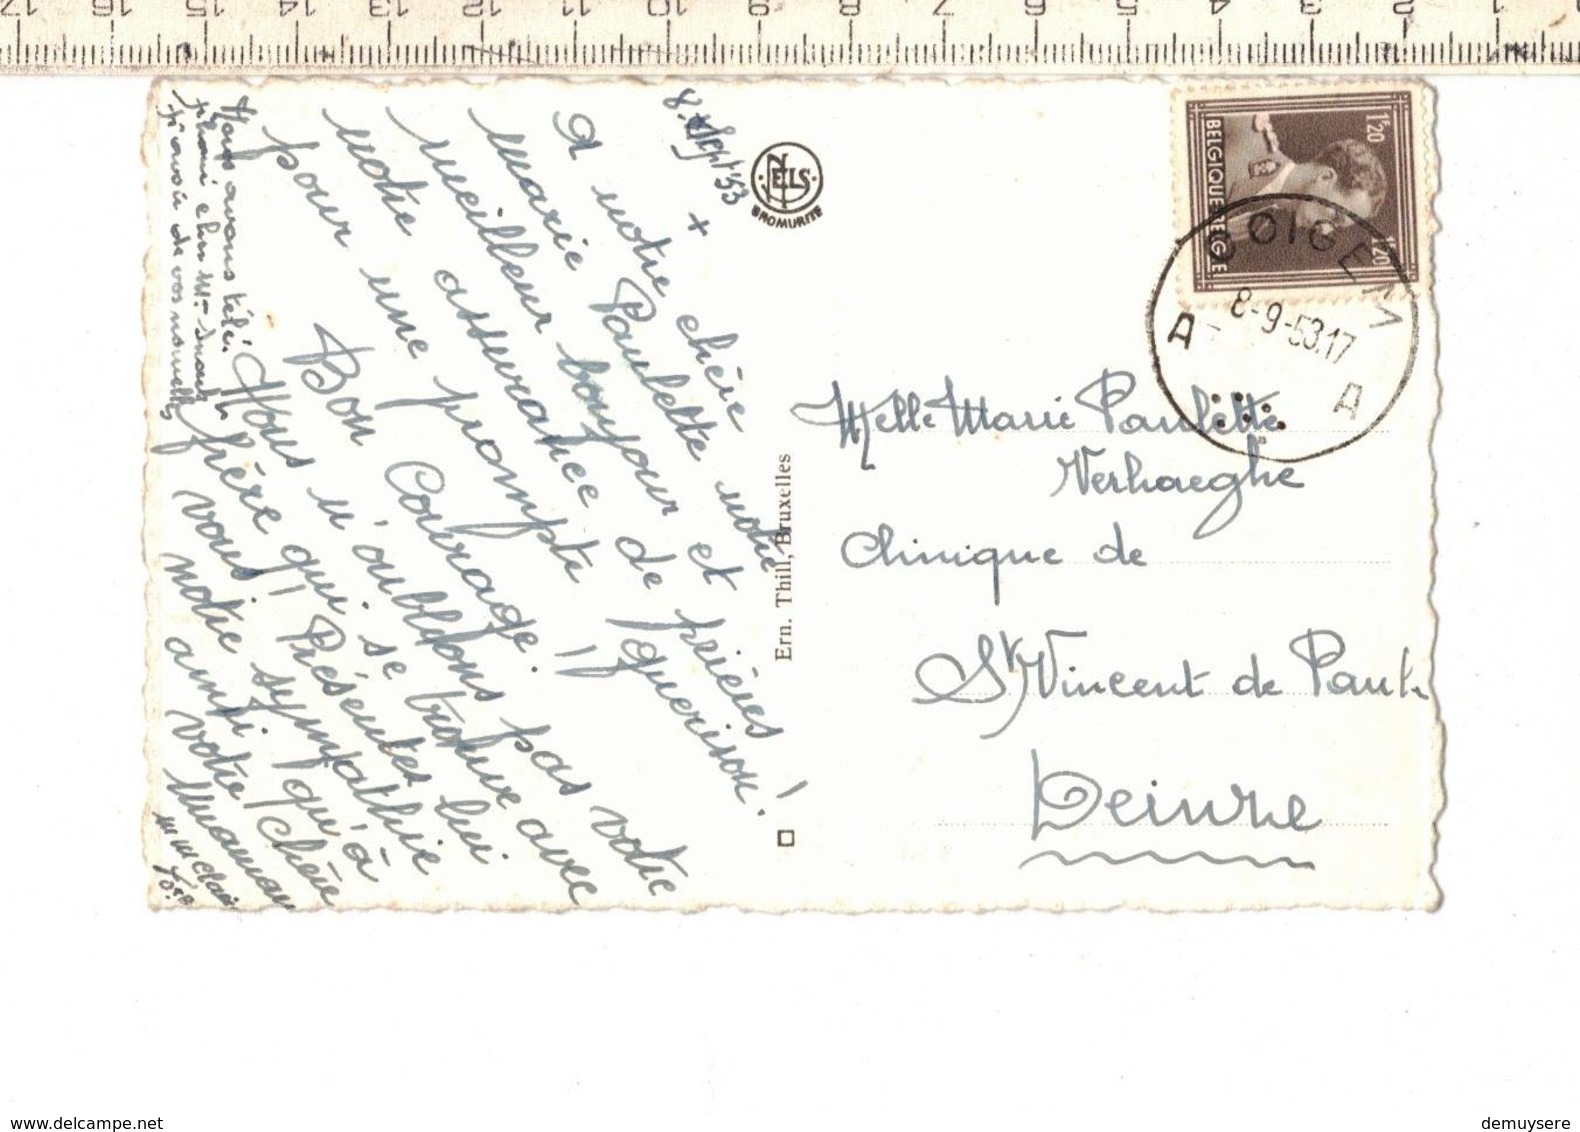 17 16 15 14 13 12 11 10 9 8 7 6 5 4 3 2 1
8. Sept 53
+
a notre chère
Marie Paulette notre
meilleur bonjour et prières!
notre assurance de guerison!
pour une prompte !!
Bon Courage.
Nous n'oublions pas votre
frère qui se trouve avec
vous! Présentez lui
notre sympathie
ainsi qu'à
votre chère
Maman
Nous avons télé-
phoné chez
de vos nouvelles
NELS
BROMURITE
Ern. Thill, Bruxelles
1F20
BELGIQUE BELGIE
1F20
OOIGEM
8-9-53.17
A A
Melle Marie Paulette
Verhaeghe
Clinique de
St Vincent de Paul.
Deinze
delcampe.net
demuysere